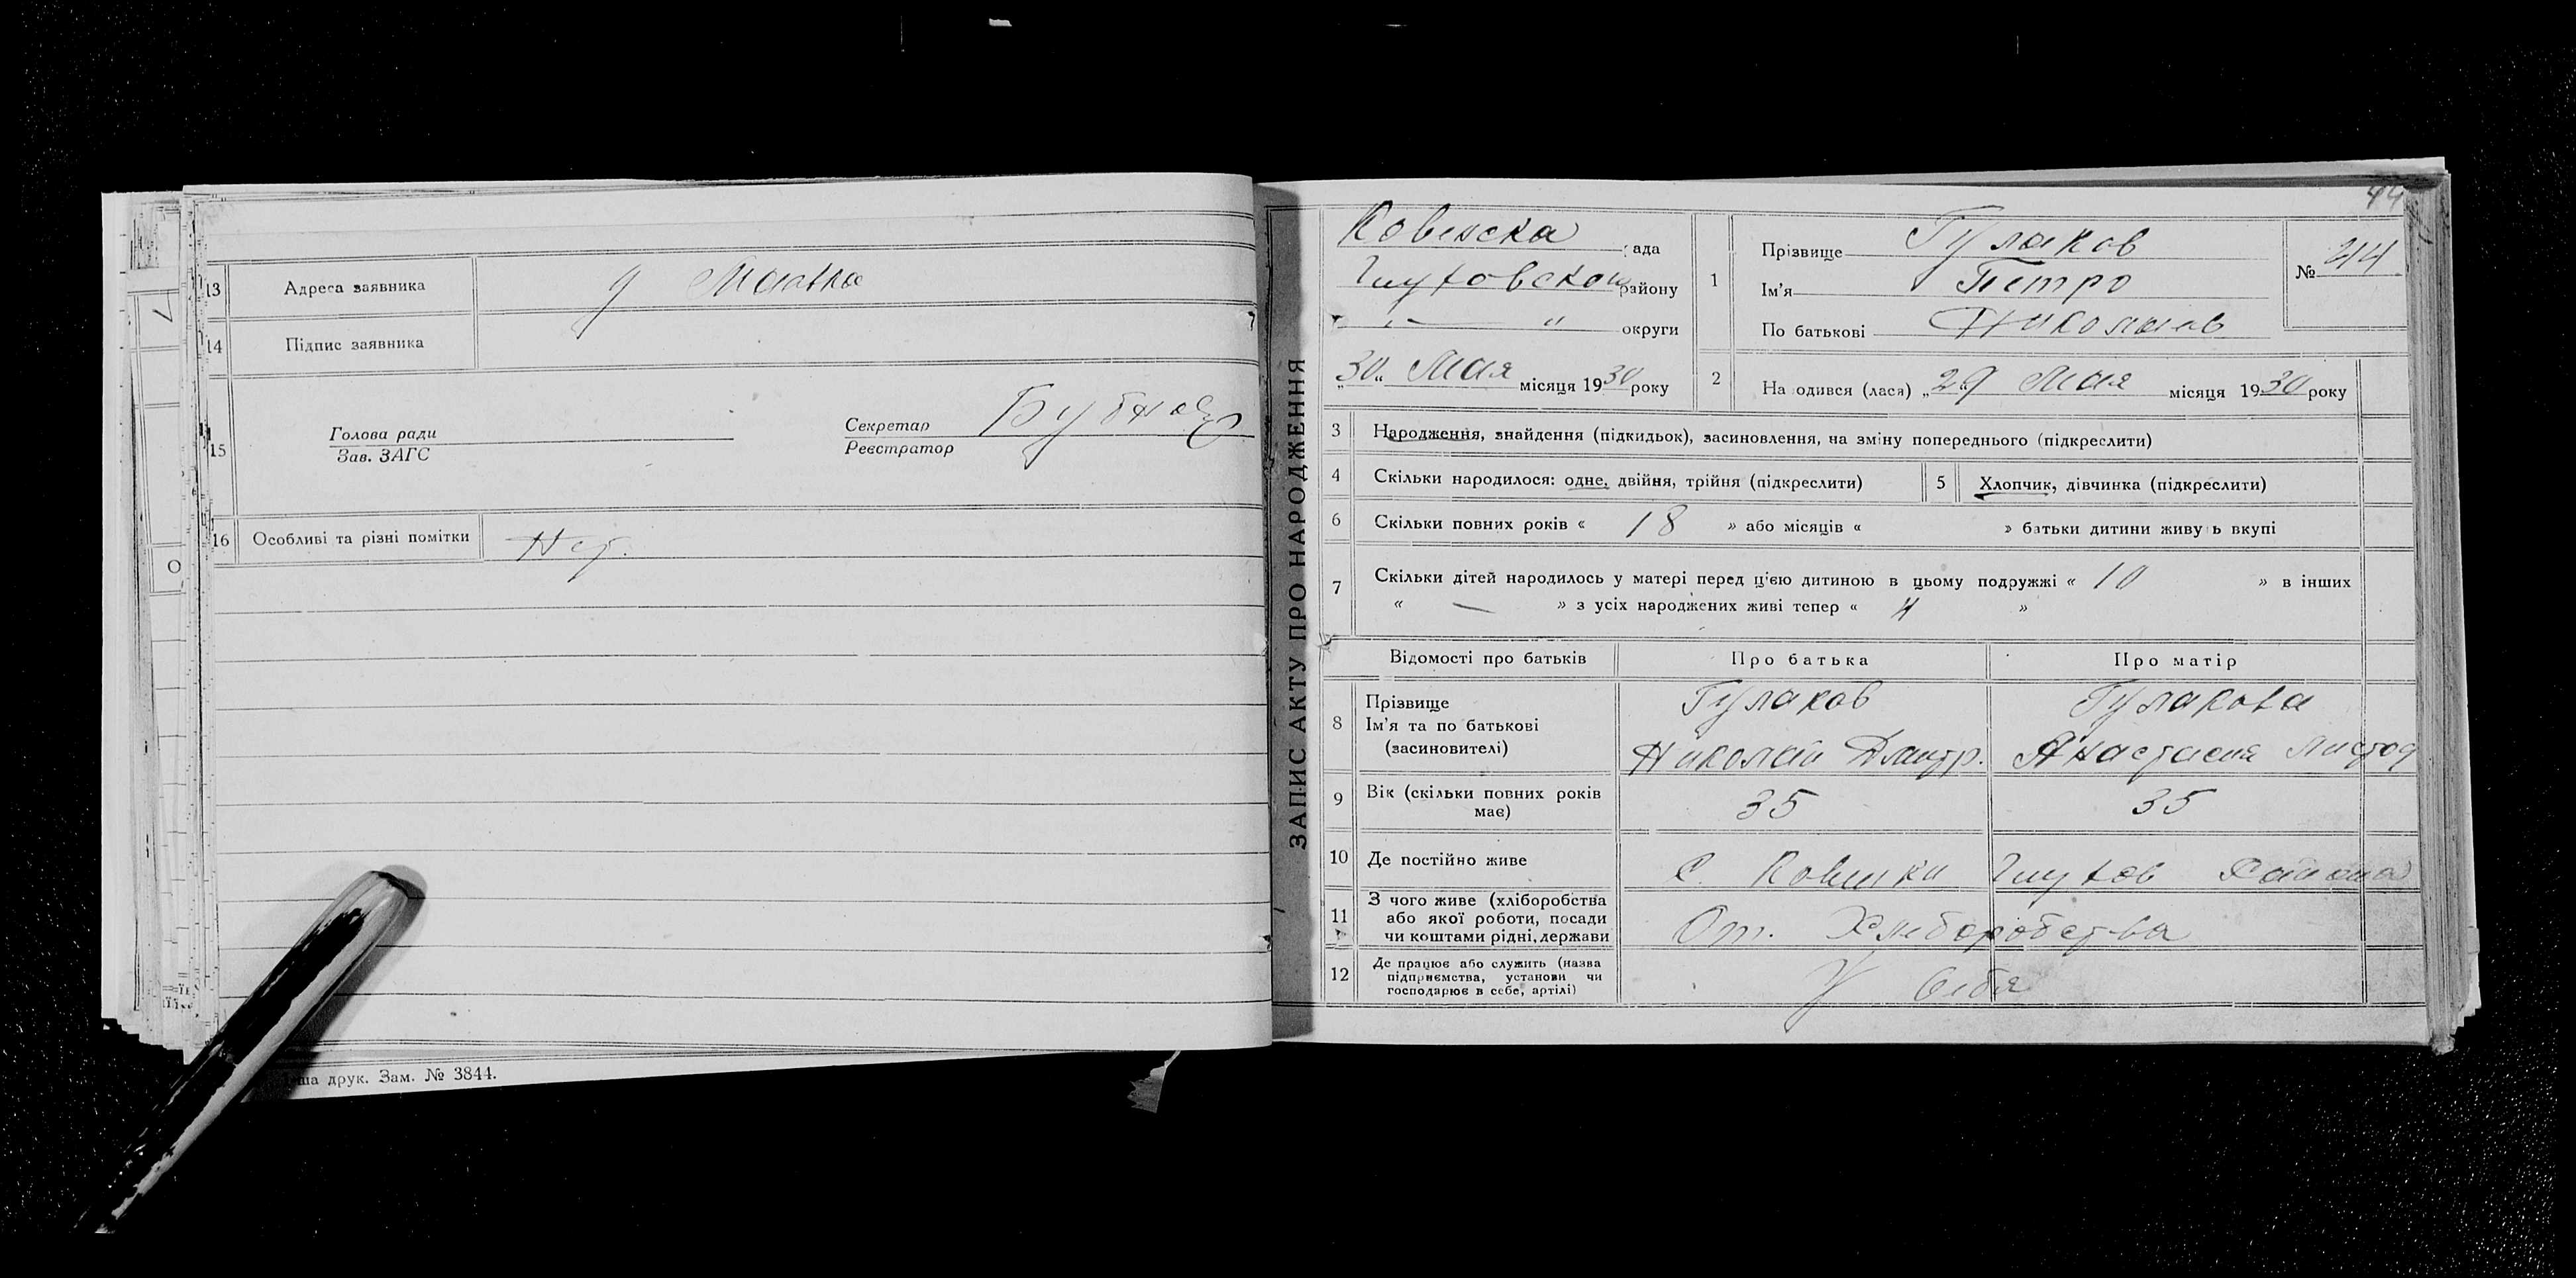 13 Адреса заявника
14 Підпис заявника
15 Голова ради
Зав. ЗАГС
Секретар
Реєстратор
16 Особливі та різні помітки Нет.
друк. Зам. № 3844.
ЗАПИС АКТУ ПРО НАРОДЖЕННЯ
44
Ковенска рада
Глуховского району
" " округи
„30" Мая місяця 1930 року
1 Прізвище Гулаков
Ім'я Петро
По батькові Николаев
№ 44
2 Народився (лася) „29 Мая місяця 1930 року
3 Народження, знайдення (підкидьок), засиновлення, на зміну попереднього (підкреслити)
4 Скільки народилося: одне, двійня, трійня (підкреслити) 5 Хлопчик, дівчинка (підкреслити)
6 Скільки повних років « 18 » або місяців « » батьки дитини живуть вкупі
7 Скільки дітей народилось у матері перед цією дитиною в цьому подружжі « 10 » в інших
« — » з усіх народжених живі тепер « 4 »
Відомості про батьків Про батька Про матір
8 Прізвище
Ім'я та по батькові
(засиновителі)
Гулаков Гулакова
Николай Дмитр. Анастасия
9 Вік (скільки повних років
має)
35 35
10 Де постійно живе С. Ковенки Глухов Района
11 З чого живе (хліборобства
або якої роботи, посади
чи коштами рідні, держави
От. Хлеборобства
12 Де працює або служить (назва
підприємства, установи чи
господарює в себе, артілі)
У себя